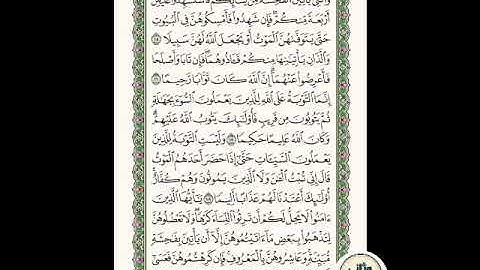 وَٱلَّٰتِي يَأۡتِينَ ٱلۡفَٰحِشَةَ مِن نِّسَآئِكُمۡ فَٱسۡتَشۡهِدُواْ عَلَيۡهِنَّ
أَرۡبَعَةٗ مِّنكُمۡۖ فَإِن شَهِدُواْ فَأَمۡسِكُوهُنَّ فِي ٱلۡبُيُوتِ
حَتَّىٰ يَتَوَفَّىٰهُنَّ ٱلۡمَوۡتُ أَوۡ يَجۡعَلَ ٱللَّهُ لَهُنَّ سَبِيلٗا ١٥
وَٱلَّذَانِ يَأۡتِيَٰنِهَا مِنكُمۡ فَـَٔاذُوهُمَاۖ فَإِن تَابَا وَأَصۡلَحَا
فَأَعۡرِضُواْ عَنۡهُمَآۗ إِنَّ ٱللَّهَ كَانَ تَوَّابٗا رَّحِيمًا ١٦
إِنَّمَا ٱلتَّوۡبَةُ عَلَى ٱللَّهِ لِلَّذِينَ يَعۡمَلُونَ ٱلسُّوٓءَ بِجَهَٰلَةٖ
ثُمَّ يَتُوبُونَ مِن قَرِيبٖ فَأُوْلَٰٓئِكَ يَتُوبُ ٱللَّهُ عَلَيۡهِمۡۗ
وَكَانَ ٱللَّهُ عَلِيمًا حَكِيمٗا ١٧ وَلَيۡسَتِ ٱلتَّوۡبَةُ لِلَّذِينَ
يَعۡمَلُونَ ٱلسَّيِّـَٔاتِ حَتَّىٰٓ إِذَا حَضَرَ أَحَدَهُمُ ٱلۡمَوۡتُ
قَالَ إِنِّي تُبۡتُ ٱلۡـَٰٔنَ وَلَا ٱلَّذِينَ يَمُوتُونَ وَهُمۡ كُفَّارٌۚ
أُوْلَٰٓئِكَ أَعۡتَدۡنَا لَهُمۡ عَذَابًا أَلِيمٗا ١٨ يَٰٓأَيُّهَا ٱلَّذِينَ
ءَامَنُواْ لَا يَحِلُّ لَكُمۡ أَن تَرِثُواْ ٱلنِّسَآءَ كَرۡهٗاۖ وَلَا تَعۡضُلُوهُنَّ
لِتَذۡهَبُواْ بِبَعۡضِ مَآ ءَاتَيۡتُمُوهُنَّ إِلَّآ أَن يَأۡتِينَ بِفَٰحِشَةٖ
مُّبَيِّنَةٖۚ وَعَاشِرُوهُنَّ بِٱلۡمَعۡرُوفِۚ فَإِن كَرِهۡتُمُوهُنَّ فَعَسَىٰٓ